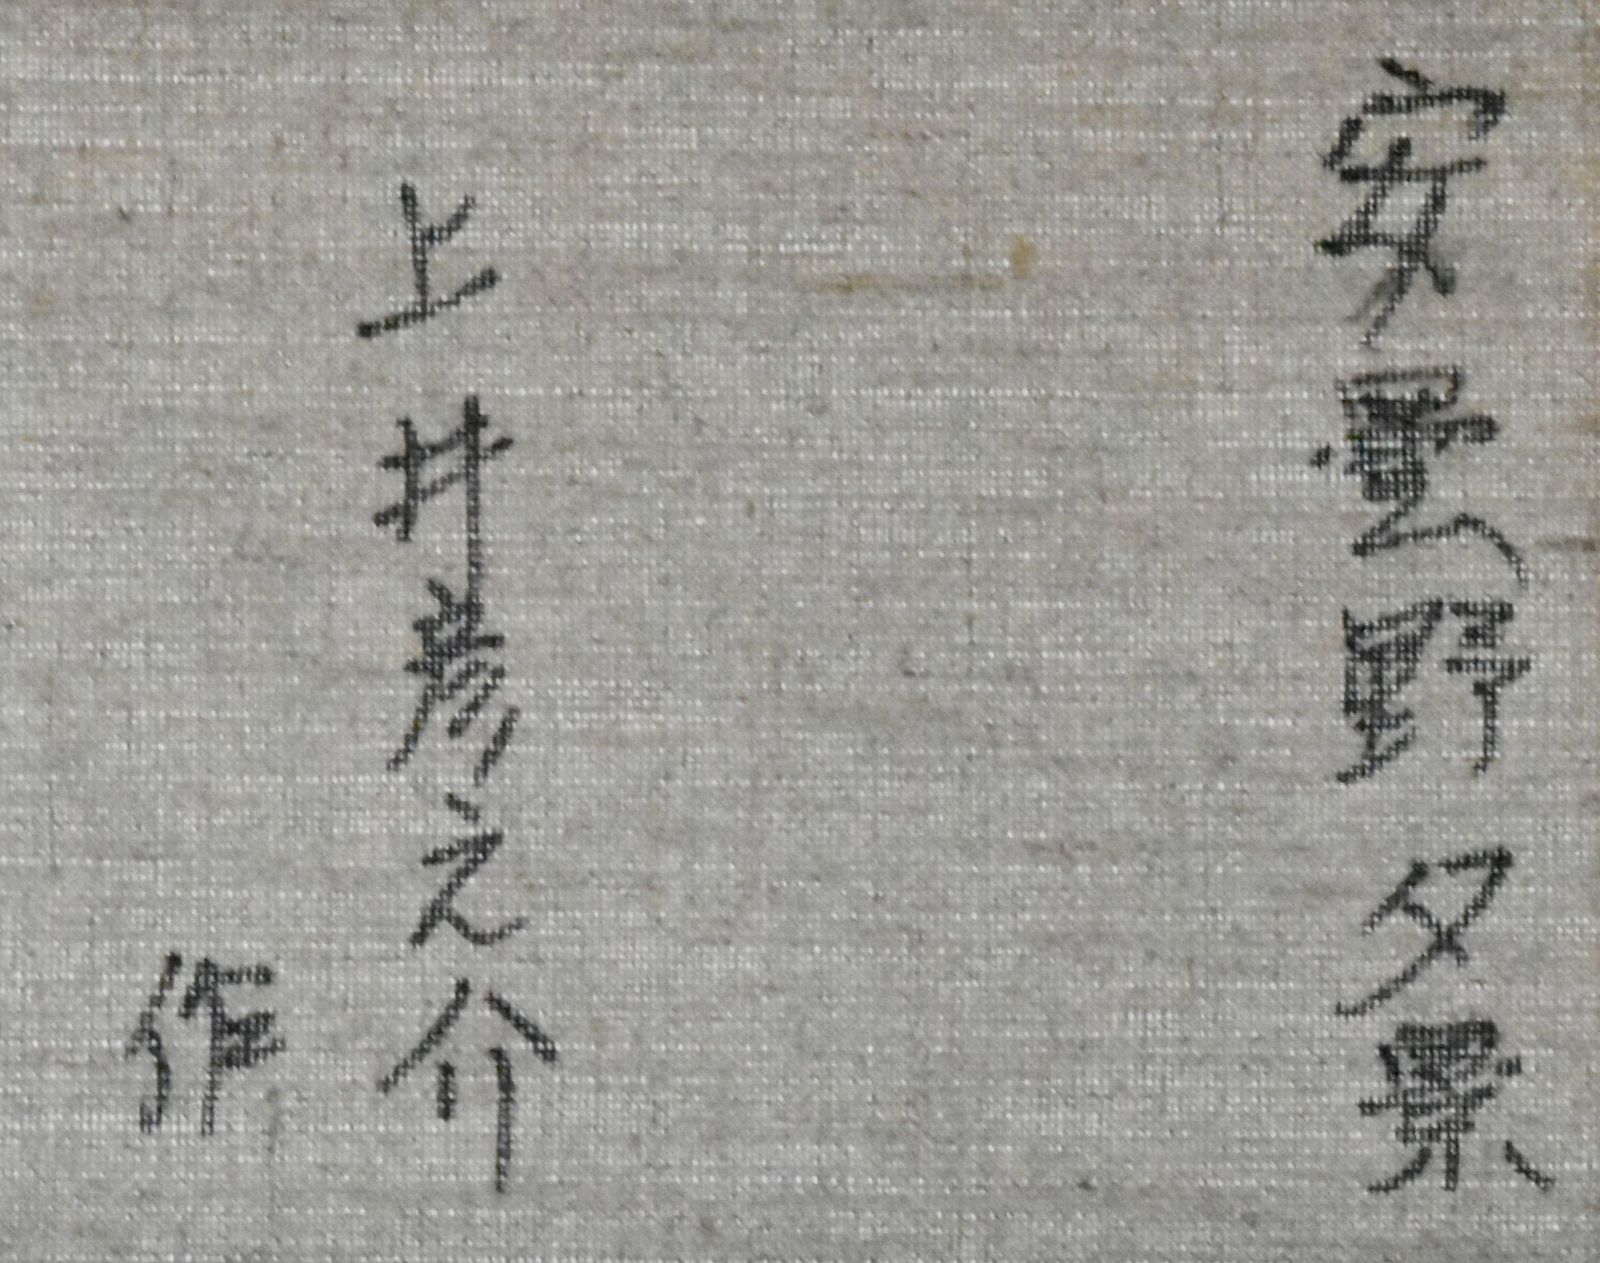 安曇野夕景
上井彦之介
作